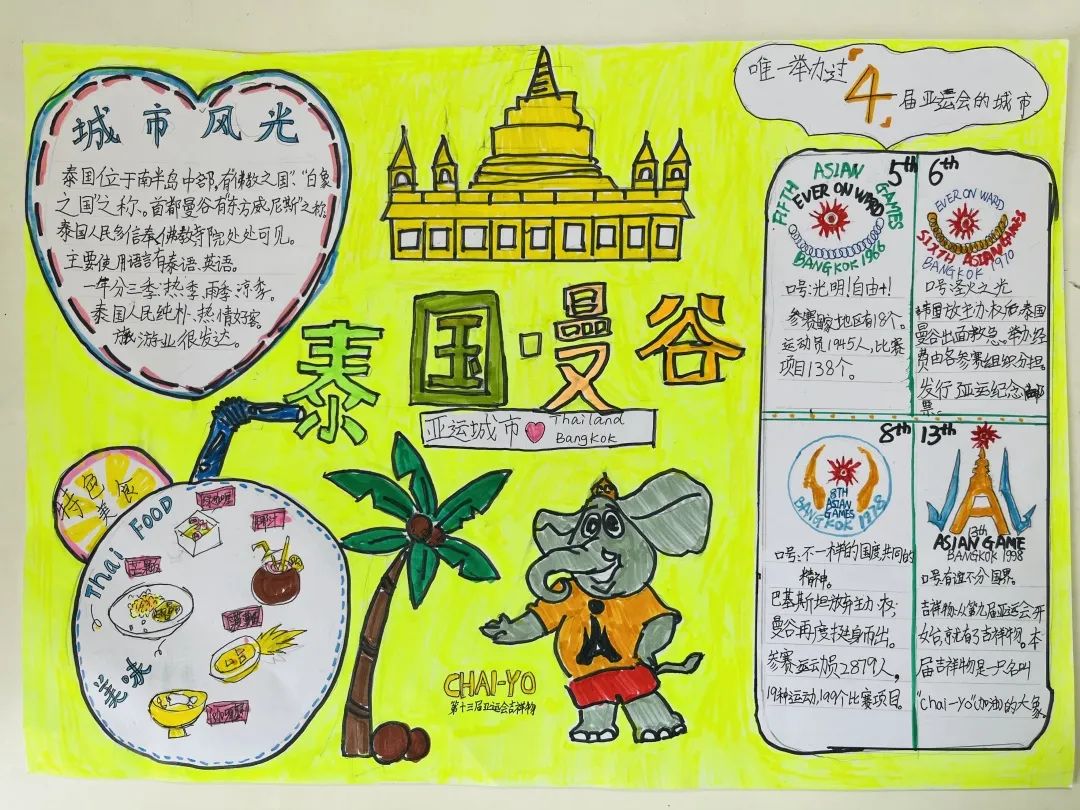 城市风光
泰国位于南半岛中部,有"佛教之国"、"白象
之国"之称。首都曼谷有"东方威尼斯"之称。
泰国人民多信奉佛教寺院处处可见。
主要使用语言有泰语、英语。
一年分三季:热季、雨季、凉季。
泰国人民纯朴、热情好客。
旅游业很发达。
泰国·曼谷
亚运城市
Thailand
Bangkok
特色
美食
Thai FOOD
美味
CHAI-YO
第十三届亚运会吉祥物
唯一举办过
4
届亚运会的城市
5th
FIFTH ASIAN GAMES
EVER ON WARD
BANGKOK 1966
口号:光明!自由+!
参赛国家地区有18个。
运动员1945人,比赛
项目138个。
6th
EVER ON WARD
SIXTH ASIAN GAMES
BANGKOK 1970
口号:圣火之光
韩国放主办权后,泰国
曼谷出面救急。举办经
费由各参赛组织分担。
发行了亚运纪念邮
票。
8th
8TH
ASIAN
GAMES
BANGKOK 1978
口号:不一样的国度共同的
精神。
巴基斯坦放弃主办权;
曼谷再度挺身而出。
参赛运动员2879人,
19种运动,199个比赛项目。
13th
13th
ASIAN GAME
BANGKOK 1998
口号:有谊不分国界。
吉祥物:从第九届亚运会开
始,就有了吉祥物。本
届吉祥物是一只名叫
"chai-yo"(加油)的大象。